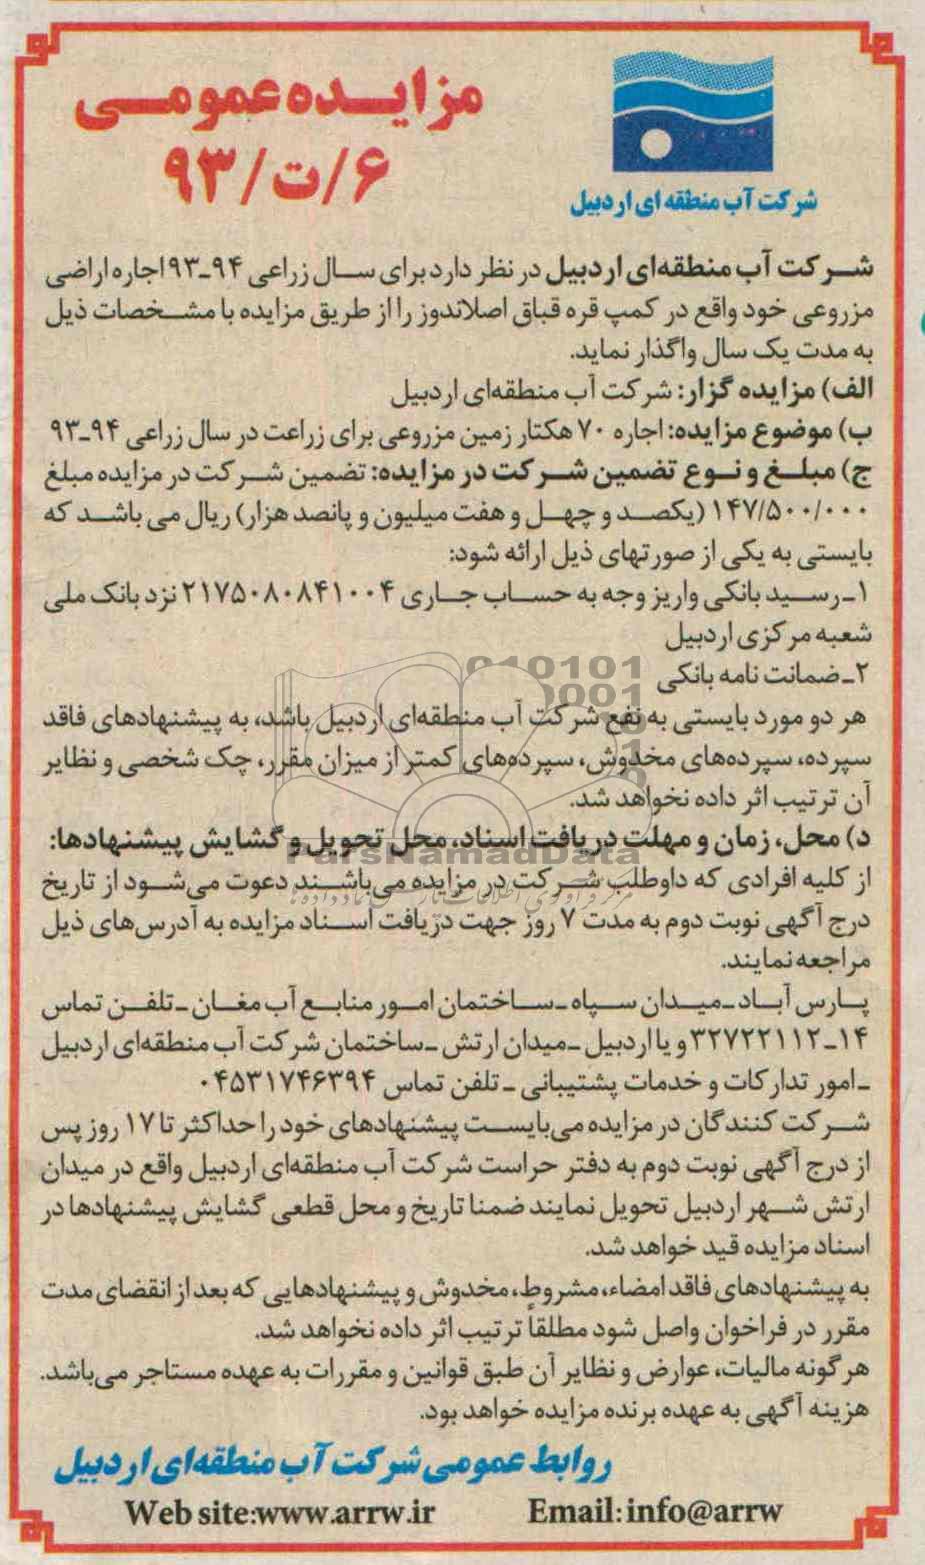 مزایده عمومی
۶/ت/۹۳
شرکت آب منطقه ای اردبیل
شرکت آب منطقه‌ای اردبیل در نظر دارد برای سال زراعی ۹۴-۹۳ اجاره اراضی
مزروعی خود واقع در کمپ قره قباق اصلاندوز را از طریق مزایده با مشخصات ذیل
به مدت یک سال واگذار نماید.
الف) مزایده گزار: شرکت آب منطقه‌ای اردبیل
ب) موضوع مزایده: اجاره ۷۰ هکتار زمین مزروعی برای زراعت در سال زراعی ۹۴-۹۳
ج) مبلغ و نوع تضمین شرکت در مزایده: تضمین شرکت در مزایده مبلغ
۱۴۷/۵۰۰/۰۰۰ (یکصد و چهل و هفت میلیون و پانصد هزار) ریال می باشد که
بایستی به یکی از صورتهای ذیل ارائه شود:
۱-رسید بانکی واریز وجه به حساب جاری ۲۱۷۵۰۸۰۸۴۱۰۰۴ نزد بانک ملی
شعبه مرکزی اردبیل
۲-ضمانت نامه بانکی
هر دو مورد بایستی به نفع شرکت آب منطقه‌ای اردبیل باشد، به پیشنهادهای فاقد
سپرده، سپرده‌های مخدوش، سپرده‌های کمتر از میزان مقرر، چک شخصی و نظایر
آن ترتیب اثر داده نخواهد شد.
د) محل، زمان و مهلت دریافت اسناد، محل تحویل و گشایش پیشنهادها:
ParsNamadData
از کلیه افرادی که داوطلب شرکت در مزایده می‌باشند دعوت می‌شود از تاریخ
درج آگهی نوبت دوم به مدت ۷ روز جهت دریافت اسناد مزایده به آدرس‌های ذیل
مراجعه نمایند.
پارس آباد -میدان سپاه -ساختمان امور منابع آب مغان -تلفن تماس
۱۴-۳۲۷۲۲۱۱۲ و یا اردبیل -میدان ارتش -ساختمان شرکت آب منطقه‌ای اردبیل
-امور تدارکات و خدمات پشتیبانی - تلفن تماس ۰۴۵۳۱۷۴۶۳۹۴
شرکت کنندگان در مزایده می‌بایست پیشنهادهای خود را حداکثر تا ۱۷ روز پس
از درج آگهی نوبت دوم به دفتر حراست شرکت آب منطقه‌ای اردبیل واقع در میدان
ارتش شهر اردبیل تحویل نمایند ضمنا تاریخ و محل قطعی گشایش پیشنهادها در
اسناد مزایده قید خواهد شد.
به پیشنهادهای فاقد امضاء، مشروط، مخدوش و پیشنهادهایی که بعد از انقضای مدت
مقرر در فراخوان واصل شود مطلقا ترتیب اثر داده نخواهد شد.
هرگونه مالیات، عوارض و نظایر آن طبق قوانین و مقررات به عهده مستاجر می‌باشد.
هزینه آگهی به عهده برنده مزایده خواهد بود.
روابط عمومی شرکت آب منطقه‌ای اردبیل
Web site:www.arrw.ir Email:info@arrw